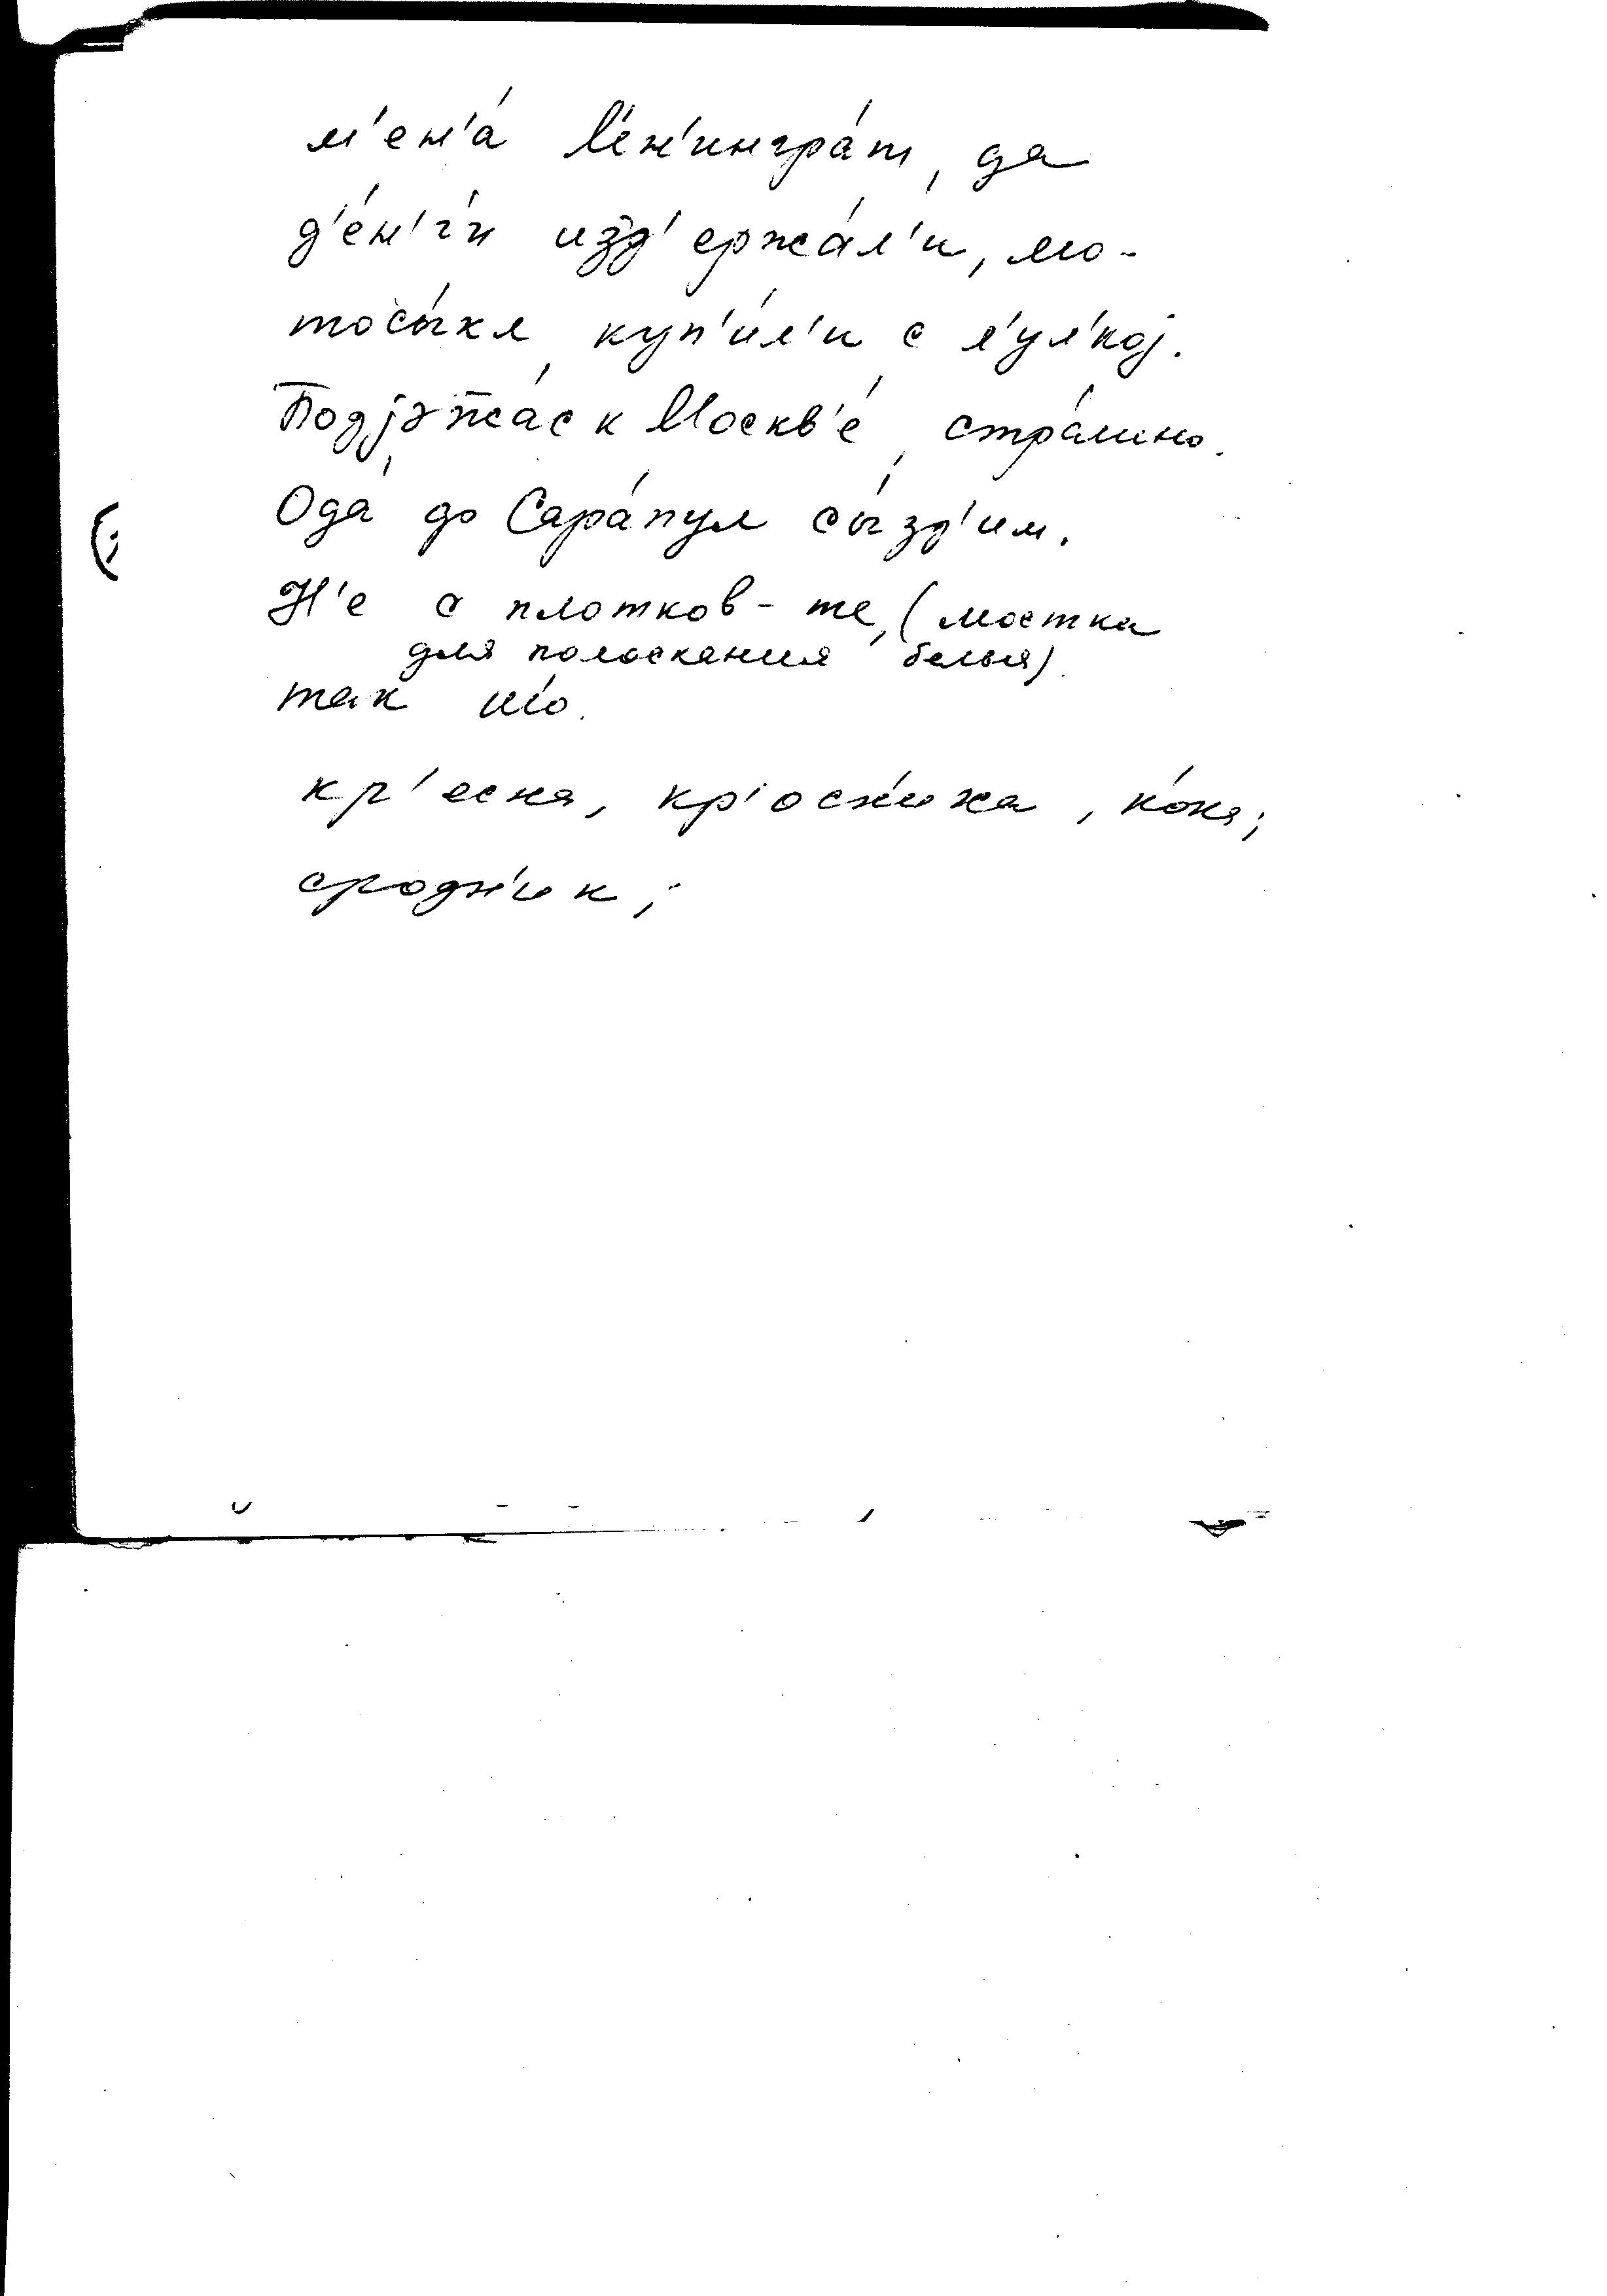 м'ен'а́ Л'ен'ингра́т, да
д'е́н'г'и изд'ержа́л'и, мо-
тосы́кл, куп'и́л'и с л'у́л'кој.
Подјэжа́с к Москв'е́, стра́шно.
Ода́ до Сара́пул сы́зд'им.
Н'е с плотков-те, (мостка
для полоскания белья)
так шо.
кр'есна, кр'осн'ижа, ко́ка;
сродн'ик;